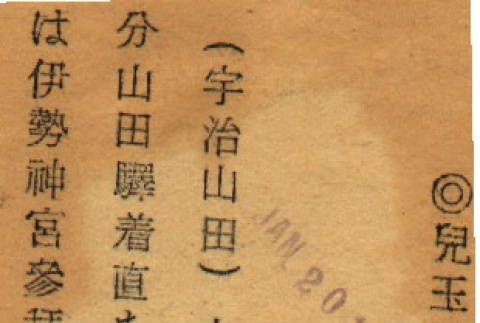 ◎兒玉
(宇治山田)
分山田驛着直
は伊勢神宮參
JAN 20